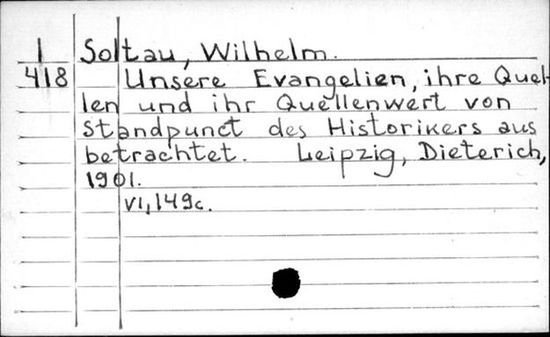 I Soltau, Wilhelm.
418 Unsere Evangelien, ihre Quel-
len und ihr Quellenwert von
Standpunct des Historikers aus
betrachtet. Leipzig, Dieterich,
1901.
VI, 149c.